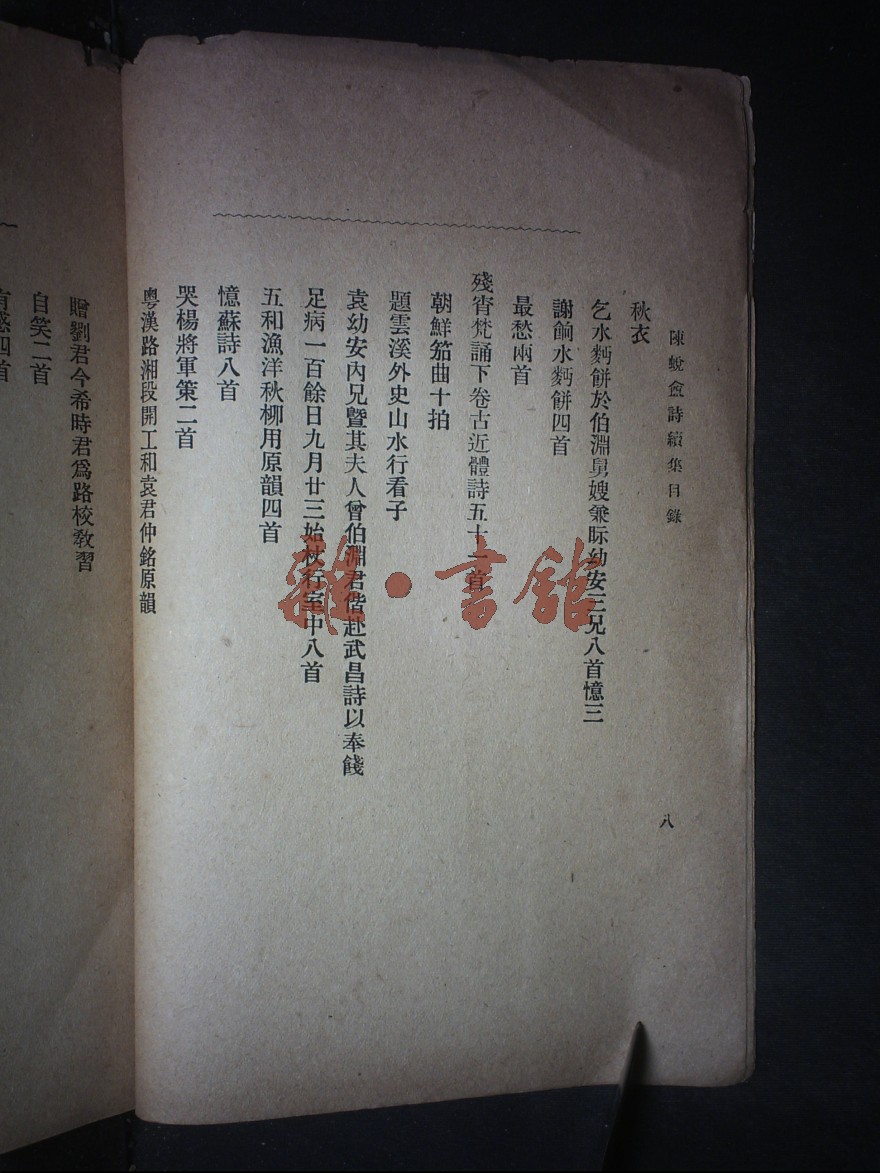 陳蛻盦詩續集目錄
八
秋衣
乞水麪餅於伯淵舅嫂兼眎幼安二兄八首憶三
謝餉水麪餅四首
最愁兩首
殘宵梵誦下卷古近體詩五十一首
朝鮮笳曲十拍
題雲溪外史山水行看子
袁幼安內兄暨其夫人曾伯淵君偕赴武昌詩以奉餞
足病一百餘日九月廿三始杖行室中八首
五和漁洋秋柳用原韻四首
憶蘇詩八首
哭楊將軍策二首
粵漢路湘段開工和袁君仲銘原韻
贈劉君今希時君爲路校教習
自笑二首
有感四首
雜·書館